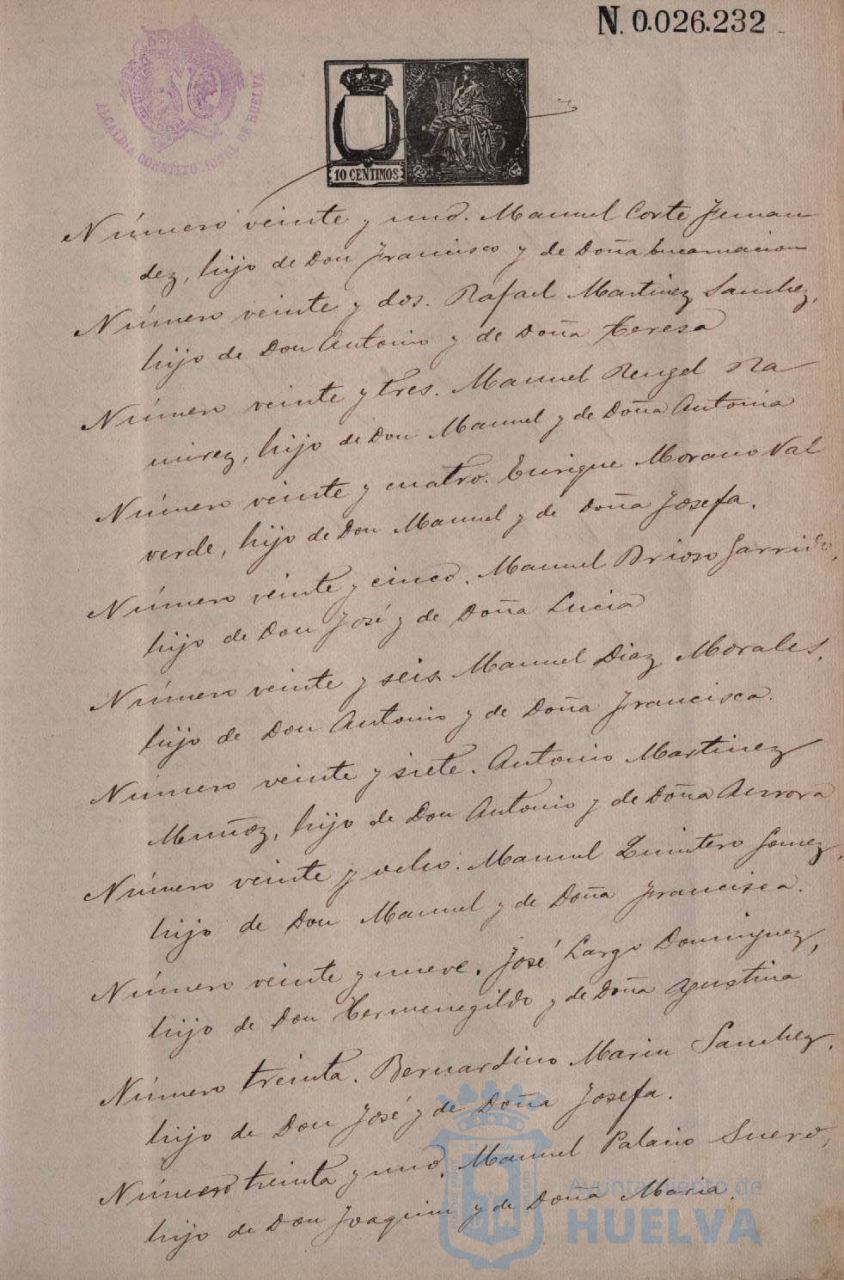 N. 0.026.232
ALCALDIA CONSTITUCIONAL DE HUELVA
10 CENTIMOS
Número veinte y uno. Manuel Corte Fernan
dez, hijo de Don Francisco y de Doña Encarnacion
Número veinte y dos. Rafael Martinez Sanchez,
hijo de Don Antonio y de Doña Teresa
Número veinte y tres. Manuel Rengel Ra
mirez, hijo de Don Manuel y de Doña Antonia
Número veinte y cuatro. Enrique Morano Val
verde, hijo de Don Manuel y de Doña Josefa.
Número veinte y cinco. Manuel Brioso Garrido,
hijo de Don José y de Doña Lucia
Número veinte y seis. Manuel Diaz Morales,
hijo de Don Antonio y de Doña Francisca.
Número veinte y siete. Antonio Martinez
Muñoz, hijo de Don Antonio y de Doña Aurora
Número veinte y ocho. Manuel Quintero Gomez,
hijo de Don Manuel y de Doña Francisca.
Número veinte y nueve. José Largo Dominguez,
hijo de Don Hermenegildo y de Doña Agustina
Número treinta. Bernardino Marin Sanchez,
hijo de Don José y de Doña Josefa.
Número treinta y uno. Manuel Palacio Suero,
hijo de Don Joaquin y de Doña Maria
Ayuntamiento de
HUELVA